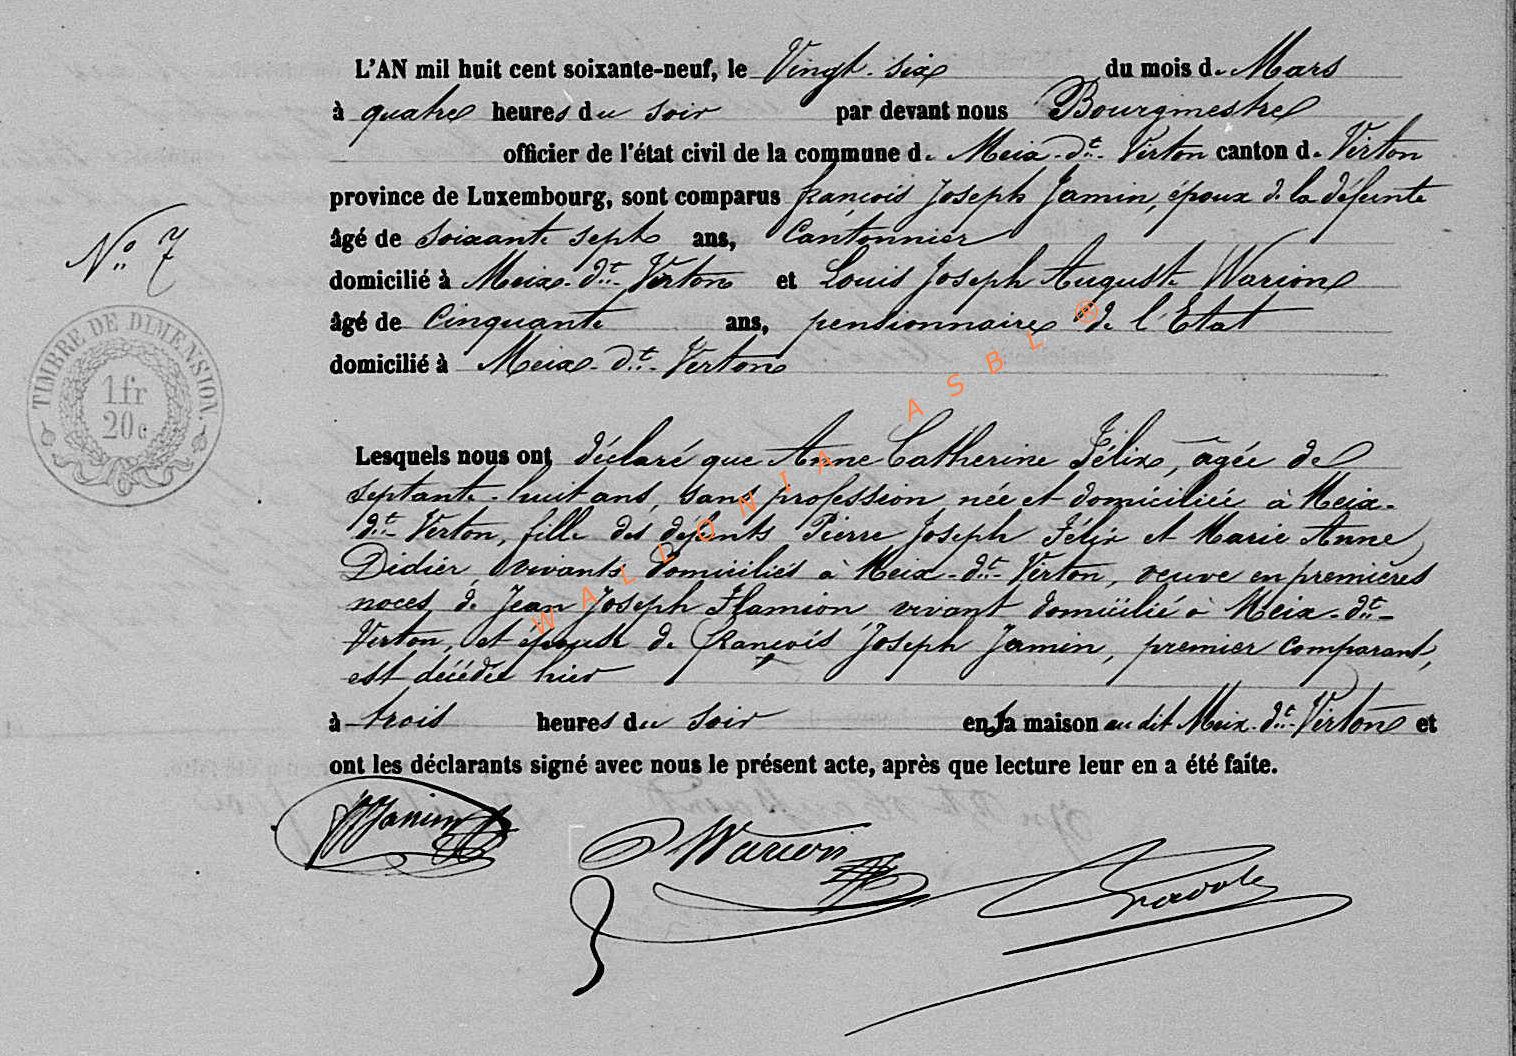 L'AN mil huit cent soixante-neuf, le Vingt-six du mois de Mars
à quatre heures du soir par devant nous Bourgmestre
officier de l'état civil de la commune de Meix-dt-Virton canton de Virton
province de Luxembourg, sont comparus françois Joseph Jamin, époux de la défunte
âgé de soixante sept ans, Cantonnier
N° 7
domicilié à Meix-dt-Virton et Louis Joseph Auguste Warion
âgé de Cinquante ans, pensionnaire de l'Etat
domicilié à Meix-dt-Virton
TIMBRE DE DIMENSION.
1fr
20c
Lesquels nous ont déclaré que Anne Catherine Félix, agée de
septante-huit ans, sans profession née et domiciliée à Meix-
dt-Virton, fille des defunts Pierre Joseph Félix et Marie Anne
Didier, vivants domiciliés à Meix-dt-Virton, veuve en premières
noces, de Jean Joseph Flamion vivant domicilié à Meix-dt-
Virton, et épouse de françois Joseph Jamin, premier comparant,
est décédée hier
à trois heures du soir en sa maison au dit Meix-dt-Virton et
ont les déclarants signé avec nous le présent acte, après que lecture leur en a été faite.
Jamin
Warion
WALLONIA ASBL ®